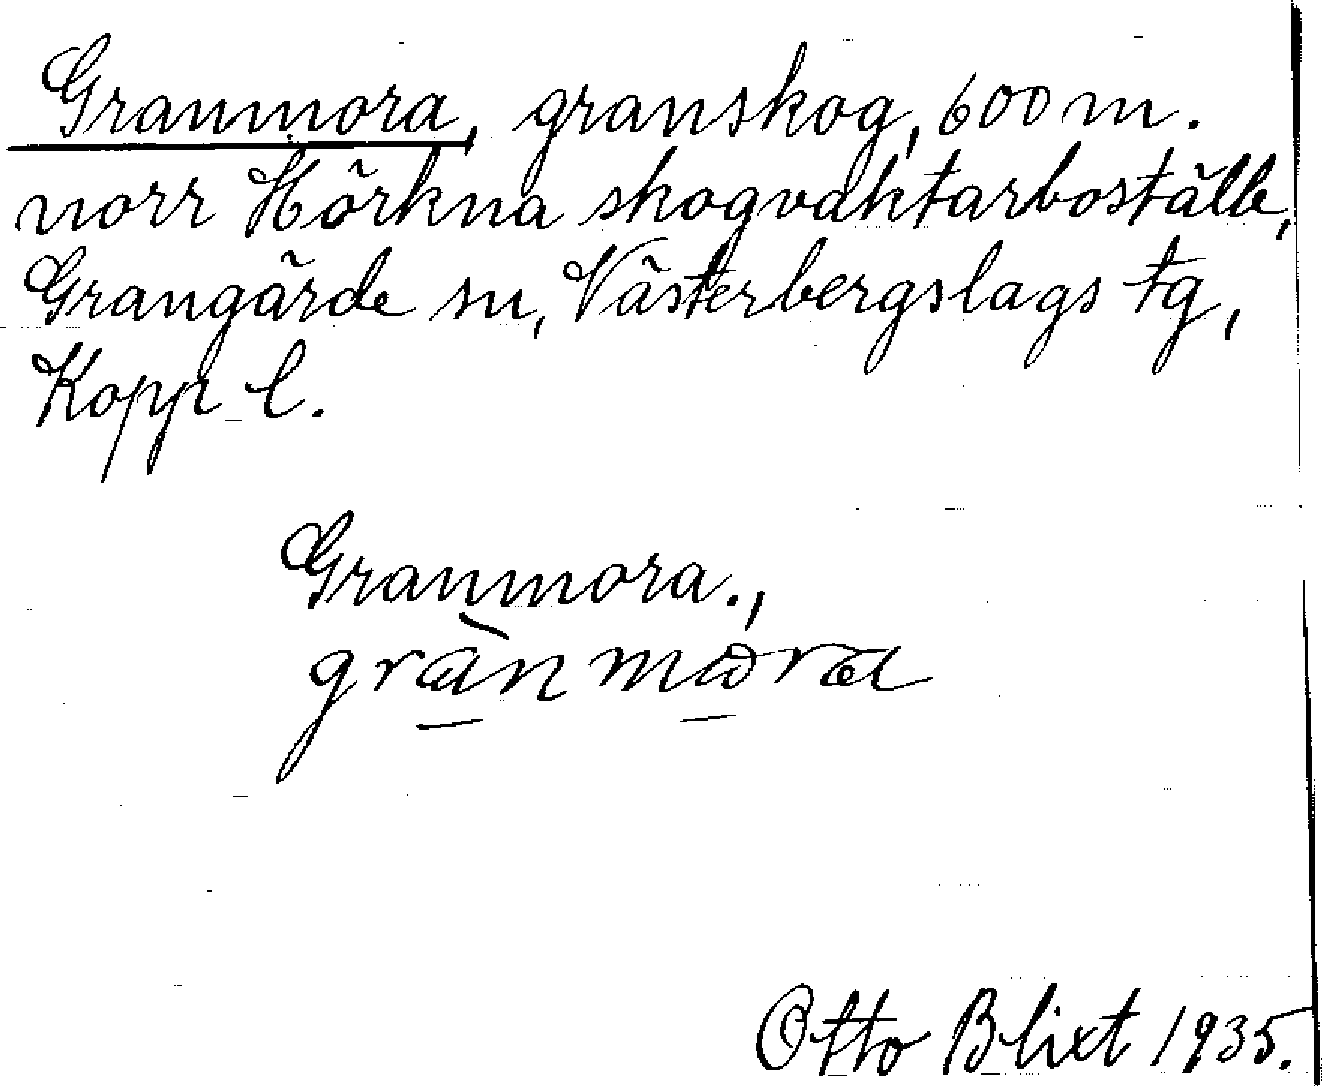 Granmora, granskog, 600 m.
norr Hörkna skogvaktarboställe,
Grangärde sn, Västerbergslags tg,
Kopp l.
Granmora.,
grànmɷra
Otto Blixt 1935.